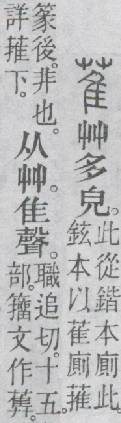 萑艸多皃。此從鍇本廁此。鉉本以萑廁蓷
篆後。非也。詳蓷下。从艸。隹聲。職追切。十五部。籒文作